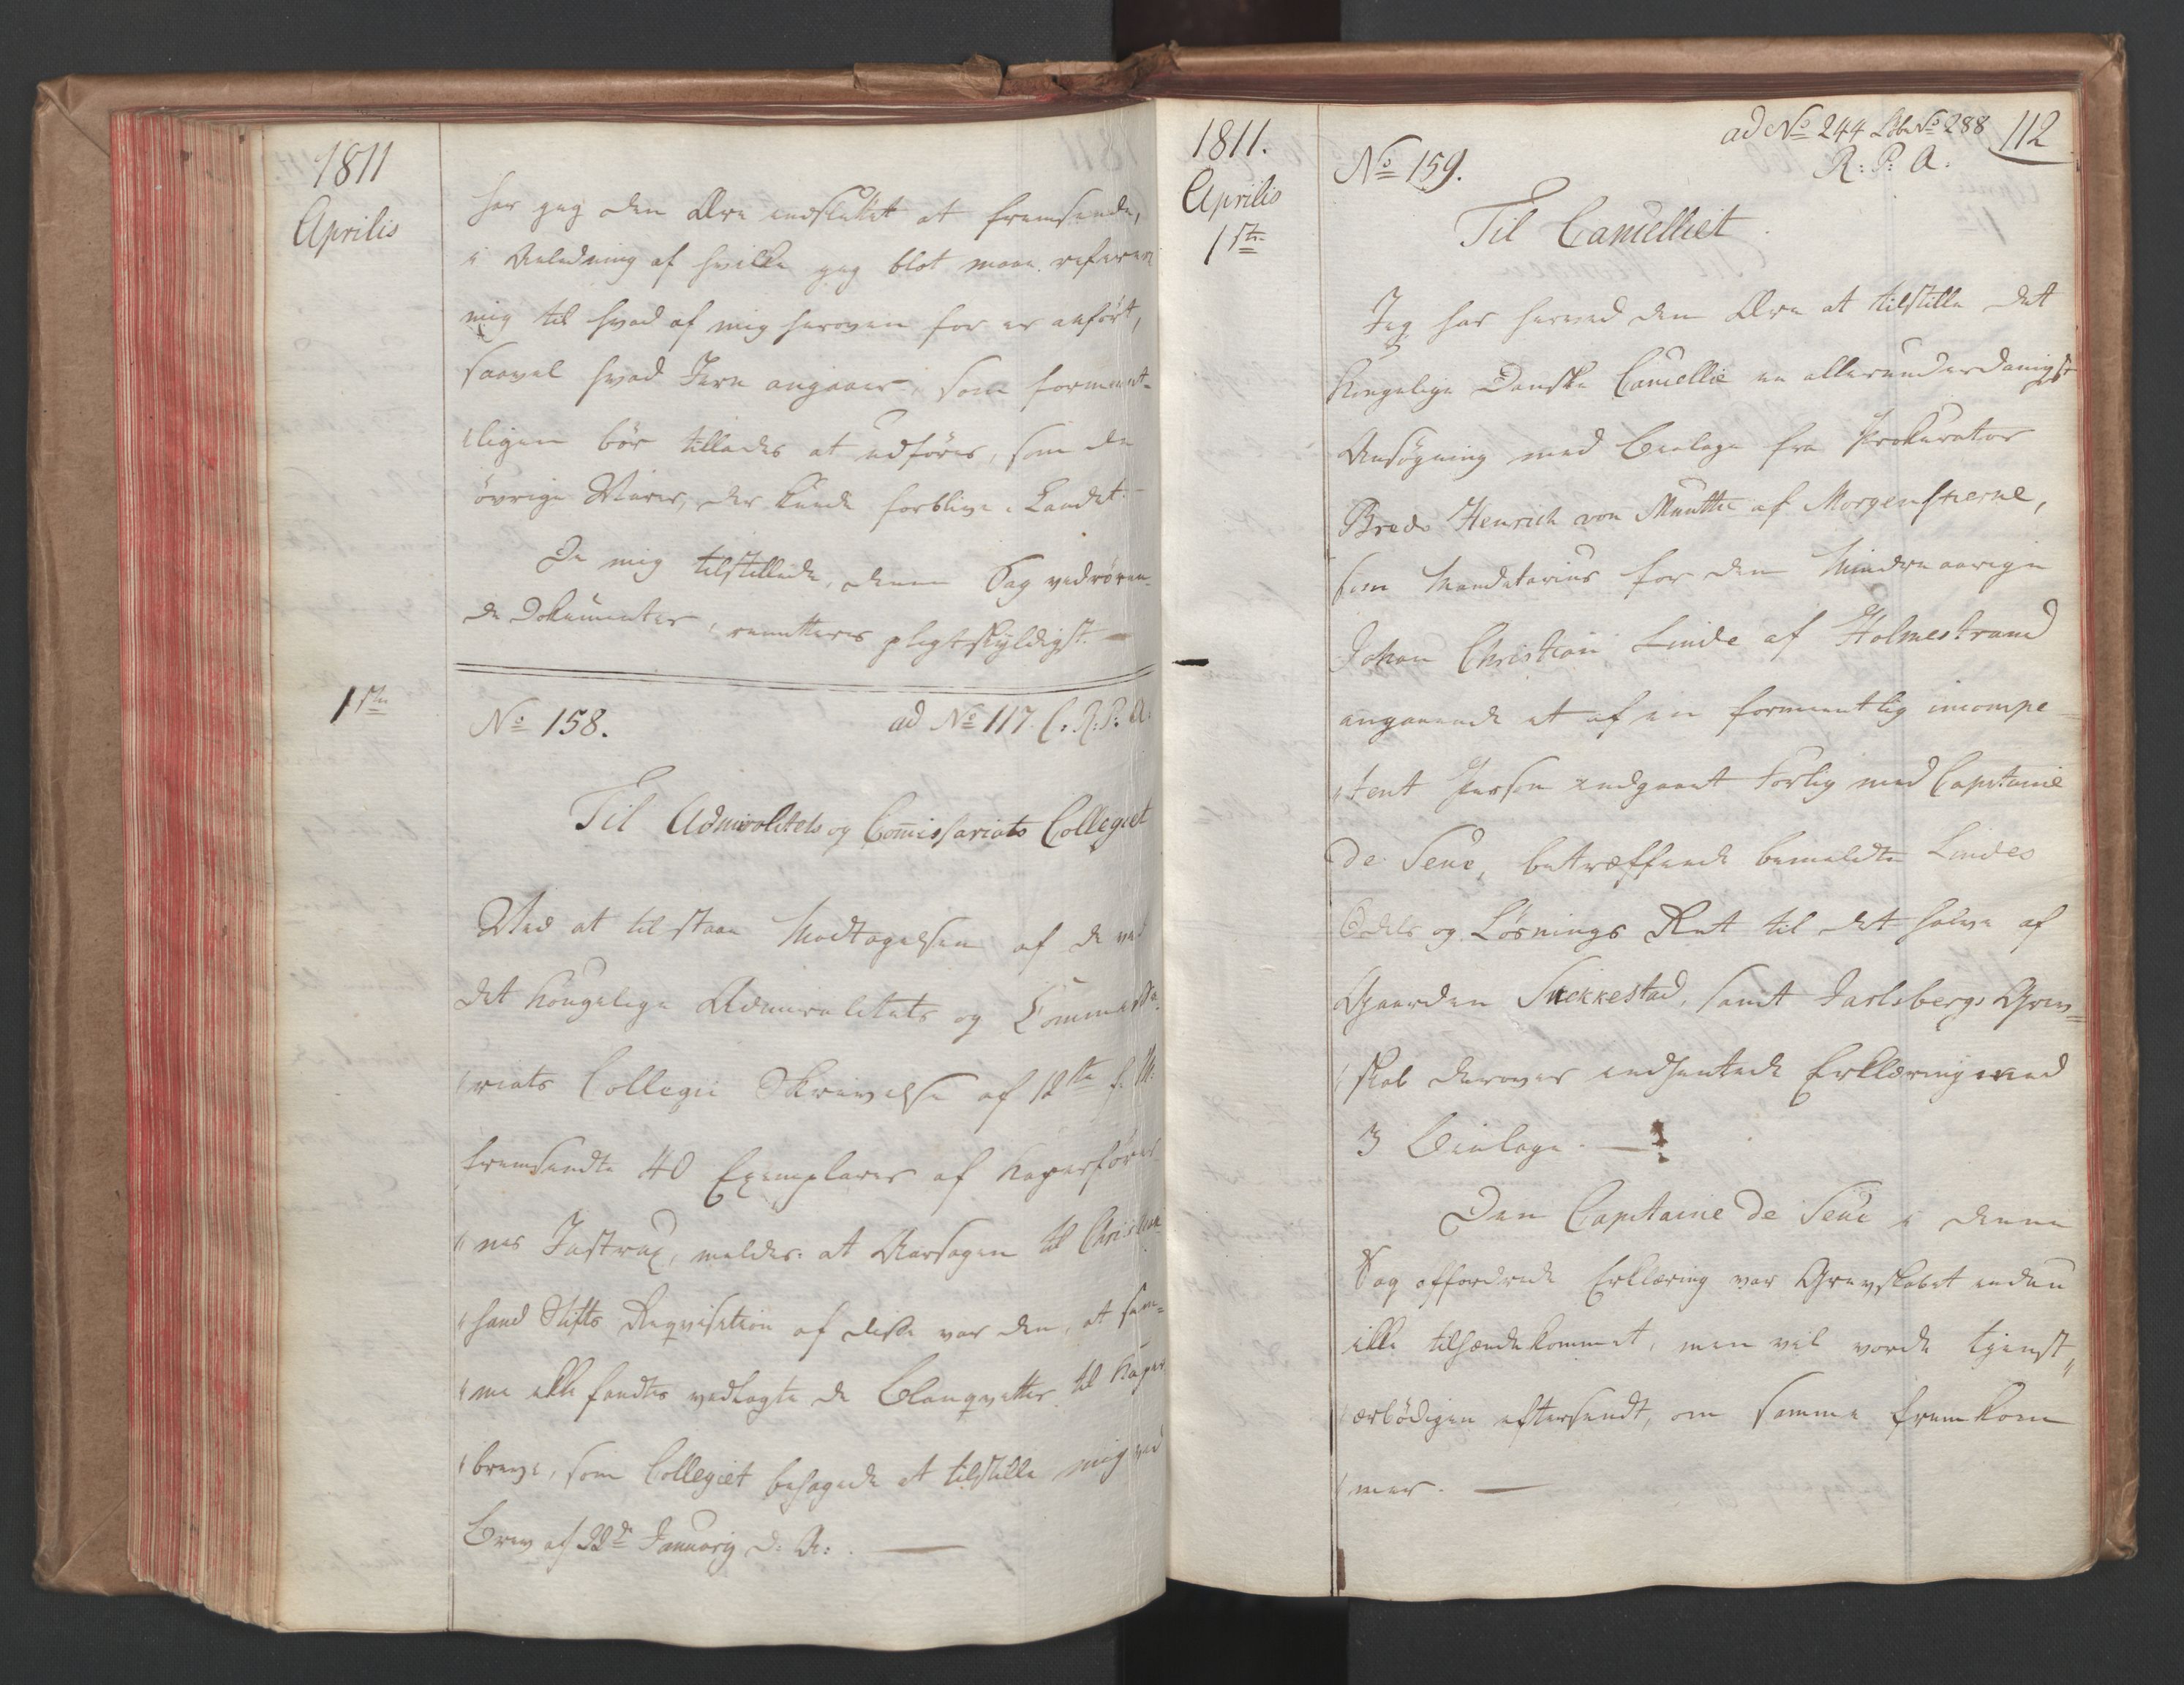 1811
Aprilis
har jeg den Ære indsluttet at fremsende,
i Anledning af hvilke jeg blot maae referere
mig til hvad af mig herover for er anført,
saavel hvad Jern angaaer, som forment-
ligen bør tillades at udføres, som de
øvrige Varer, der kunde forblive i Landet.
De mig tilstillede, denne Sag vedrøren-
de Dokumenter, remitteres pligtskyldigst. —
1ste
No 158.
ad No 117. C. R: P: A:
Til Admiralitets og Commissariats Collegiet
Ved at tilstaae Modtagelsen af de ved
det kongelige Admiralitets og Commissa-
riats Collegii Skrivelse af 12te f. M.
fremsendte 40 Exemplarer af Kaperfører-
nes Instrux, meldes at Aarsagen til Christian-
sand Stifts Reqvisition af disse var den, at sam-
me ikke fandtes vedlagte de Blanqvetter til Kaper
breve, som Collegiet behagede at tilstille mig ved
Brev af 22de Januarij d. A: . —
1811.
Aprilis
1ste
ad No 244 Lb No 288
112
R: P: A.
No 159.
Til Cancelliet.
Jeg har herved den Ære at tilstille det
kongelige Danske Cancellie en allerunderdanigst
Ansøgning med Bielage fra Prokurator
Bredo Henrich von Munthe af Morgenstierne,
som Mandatarius for den Mindreaarige
Johan Christian Linde af Holmestrand
angaaende et af en formeentlig incompe-
tent Person indgaaet Forlig med Capitaine
de Seue, betræffende bemeldte Lindes
Odels og Løsnings Ret til det halve af
Gaarden Snekkestad, samt Jarlsbergs Grev-
skab derover indhentede Erklæring med
3 Bielage. —
Den Capitaine de Seue i denne
Sag affordrede Erklæring var Grevskabet endnu
ikke tilhændekommet, men vil vorde tienst
ærbødigen eftersendt, om samme fremkom
mer. —